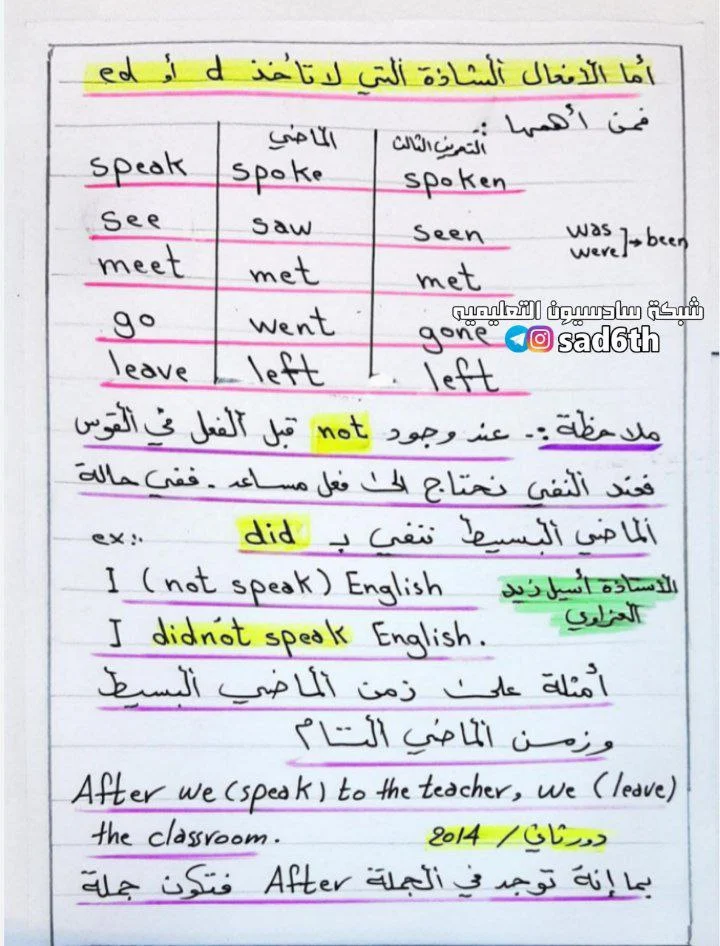 أما الأفعال الشاذة التي لا تأخذ d أو ed
فمن أهمها :
الماضي التصريف الثالث
speak spoke spoken
see saw seen
was were ] → been
meet met met
شبكة سادسيون التعليميه
go went gone
sad6th
leave left left
ملاحظة :- عند وجود not قبل الفعل في القوس
فعند النفي نحتاج الى فعل مساعد . ففي حالة
الماضي البسيط ننفي بـ did ex:.
I (not speak) English
الأستاذة أسيل زيد
العزاوي
I didn't speak English.
أمثلة على زمن الماضي البسيط
وزمن الماضي التام
After we (speak) to the teacher, we (leave)
the classroom. 2014 / دور ثاني
بما إنة توجد في الجملة After فتكون جملة